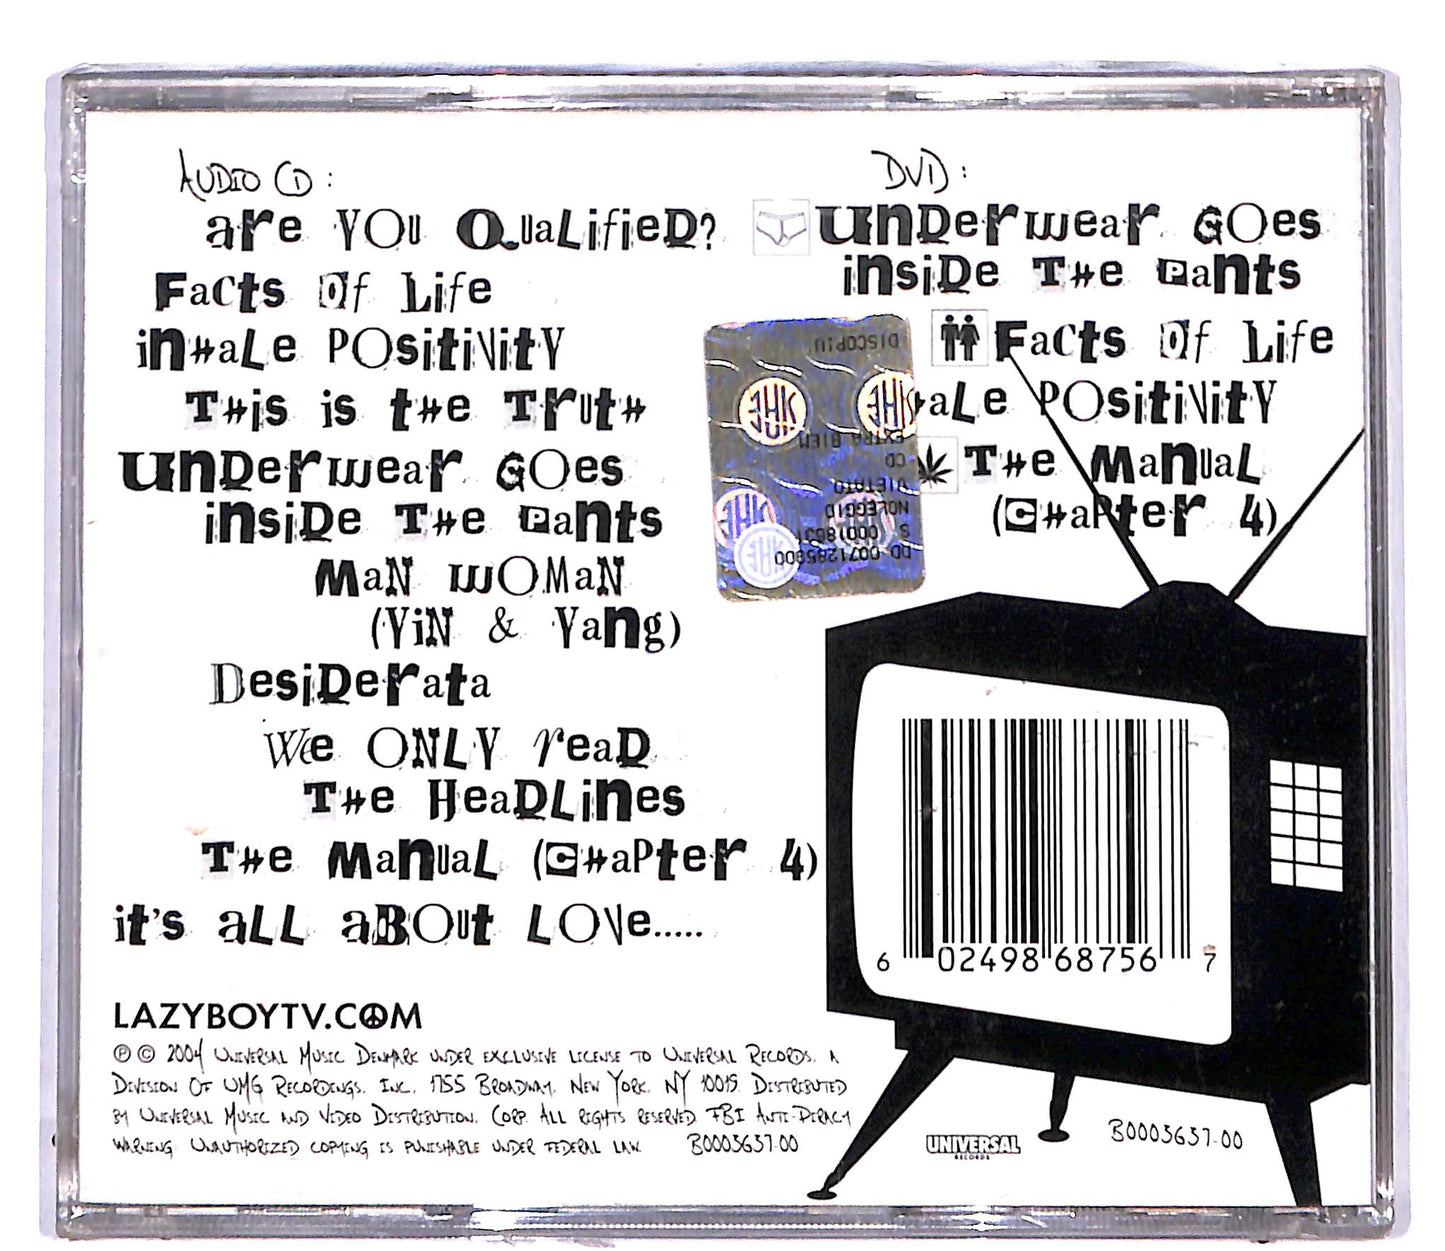 AUDIO CD:
are YOU QUaLifieD?
Facts Of Life
inHaLe POsitiVitY
THis is tHe TrutH
UnDerwear GOes
insiDe THe Pants
MaN WOMaN
(YiN & Yang)
DesiDerata
We ONLY reaD
THe HeaDLines
THe ManUaL (CHaPter 4)
it's aLL aBOut LOVe.....
LAZYBOYTV.COM
℗ © 2004 Universal Music Denmark under exclusive license to Universal Records, A
Division Of UMG Recordings, Inc., 1755 Broadway, New York, NY 10019. Distributed
by Universal Music and Video Distribution, Corp. All rights reserved. FBI Anti-Piracy
Warning: Unauthorized copying is punishable under federal law. B0003637-00
DVD:
UnDerwear GOes
insiDe THe Pants
Facts Of Life
aLe POsitiVitY
THe ManUaL
(CHaPter 4)
DISCOPIU
EXTRA BIEM
CD
VIETATO
NOLEGGIO
S
6 02498 68756 7
UNIVERSAL
RECORDS
B0003637-00